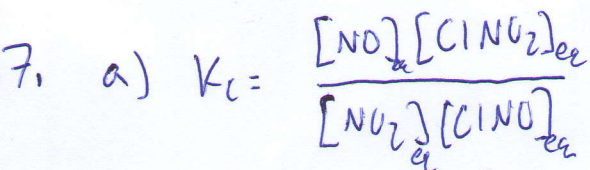 7. a) Kc = [NO]eq[ClNO2]eq
[NO2]eq[ClNO]eq